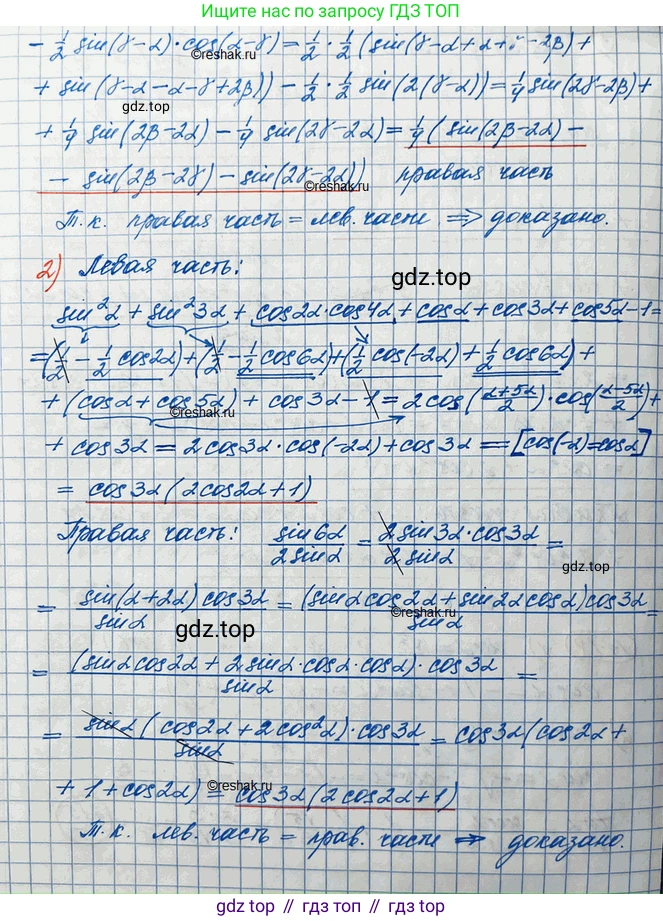 Ищите по запросу ГДЗ ТОП
- 1/2 sin(γ-α)·cos(α-γ) = 1/2 · 1/2 (sin(γ-α+α+γ-2β) +
©reshak.ru
+ sin(γ-α-α-γ+2β)) - 1/2 · 1/2 sin(2(γ-α)) = 1/4 sin(2γ-2β) +
gdz.top
+ 1/4 sin(2β-2α) - 1/4 sin(2γ-2α) = 1/4 (sin(2β-2α) -
- sin(2β-2γ) - sin(2γ-2α)) правая часть
©reshak.ru
Т.к. правая часть = лев. части ⇒ доказано.
2) Левая часть:
gdz.top
sin²α + sin²3α + cos2α·cos4α + cosα + cos3α + cos5α - 1 =
= (1/2 - 1/2 cos2α) + (1/2 - 1/2 cos6α) + (1/2 cos(-2α) + 1/2 cos6α) +
+ (cosα + cos5α) + cos3α - 1 = 2cos((α+5α)/2)·cos((α-5α)/2) +
©reshak.ru
+ cos3α = 2cos3α·cos(-2α) + cos3α = [cos(-α) = cosα]
= cos3α(2cos2α+1)
Правая часть: sin6α/2sinα = 2sin3α·cos3α/2sinα =
gdz.top
= sin(α+2α)cos3α/sinα = (sinαcos2α + sin2αcosα)cos3α/sinα =
©reshak.ru
gdz.top
= (sinαcos2α + 2sinα·cosα·cosα)·cos3α/sinα =
= sinα(cos2α + 2cos²α)·cos3α/sinα = cos3α(cos2α +
+ 1 + cos2α) = cos3α(2cos2α+1)
©reshak.ru
Т.к. лев. часть = прав. части ⇒ доказано.
gdz.top // гдз.топ // gdz.top